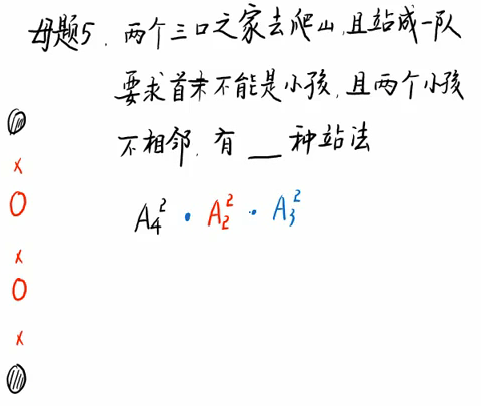 母题5. 两个三口之家去爬山,且站成一队
要求首末不能是小孩,且两个小孩
不相邻.有__种站法
A₄² · A₂² · A₃²